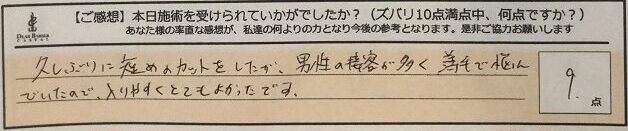 【ご感想】本日施術を受けられていかがでしたか？（ズバリ10点満点中、何点ですか？）
あなた様の率直な感想が、私達の何よりの力となり今後の参考となります。是非ご協力お願いします
DEAR BARBER
久しぶりに短めのカットをしたが、男性の接客が多く 薄毛で悩ん
でいたので、入りやすくとてもよかったです。
9.
点